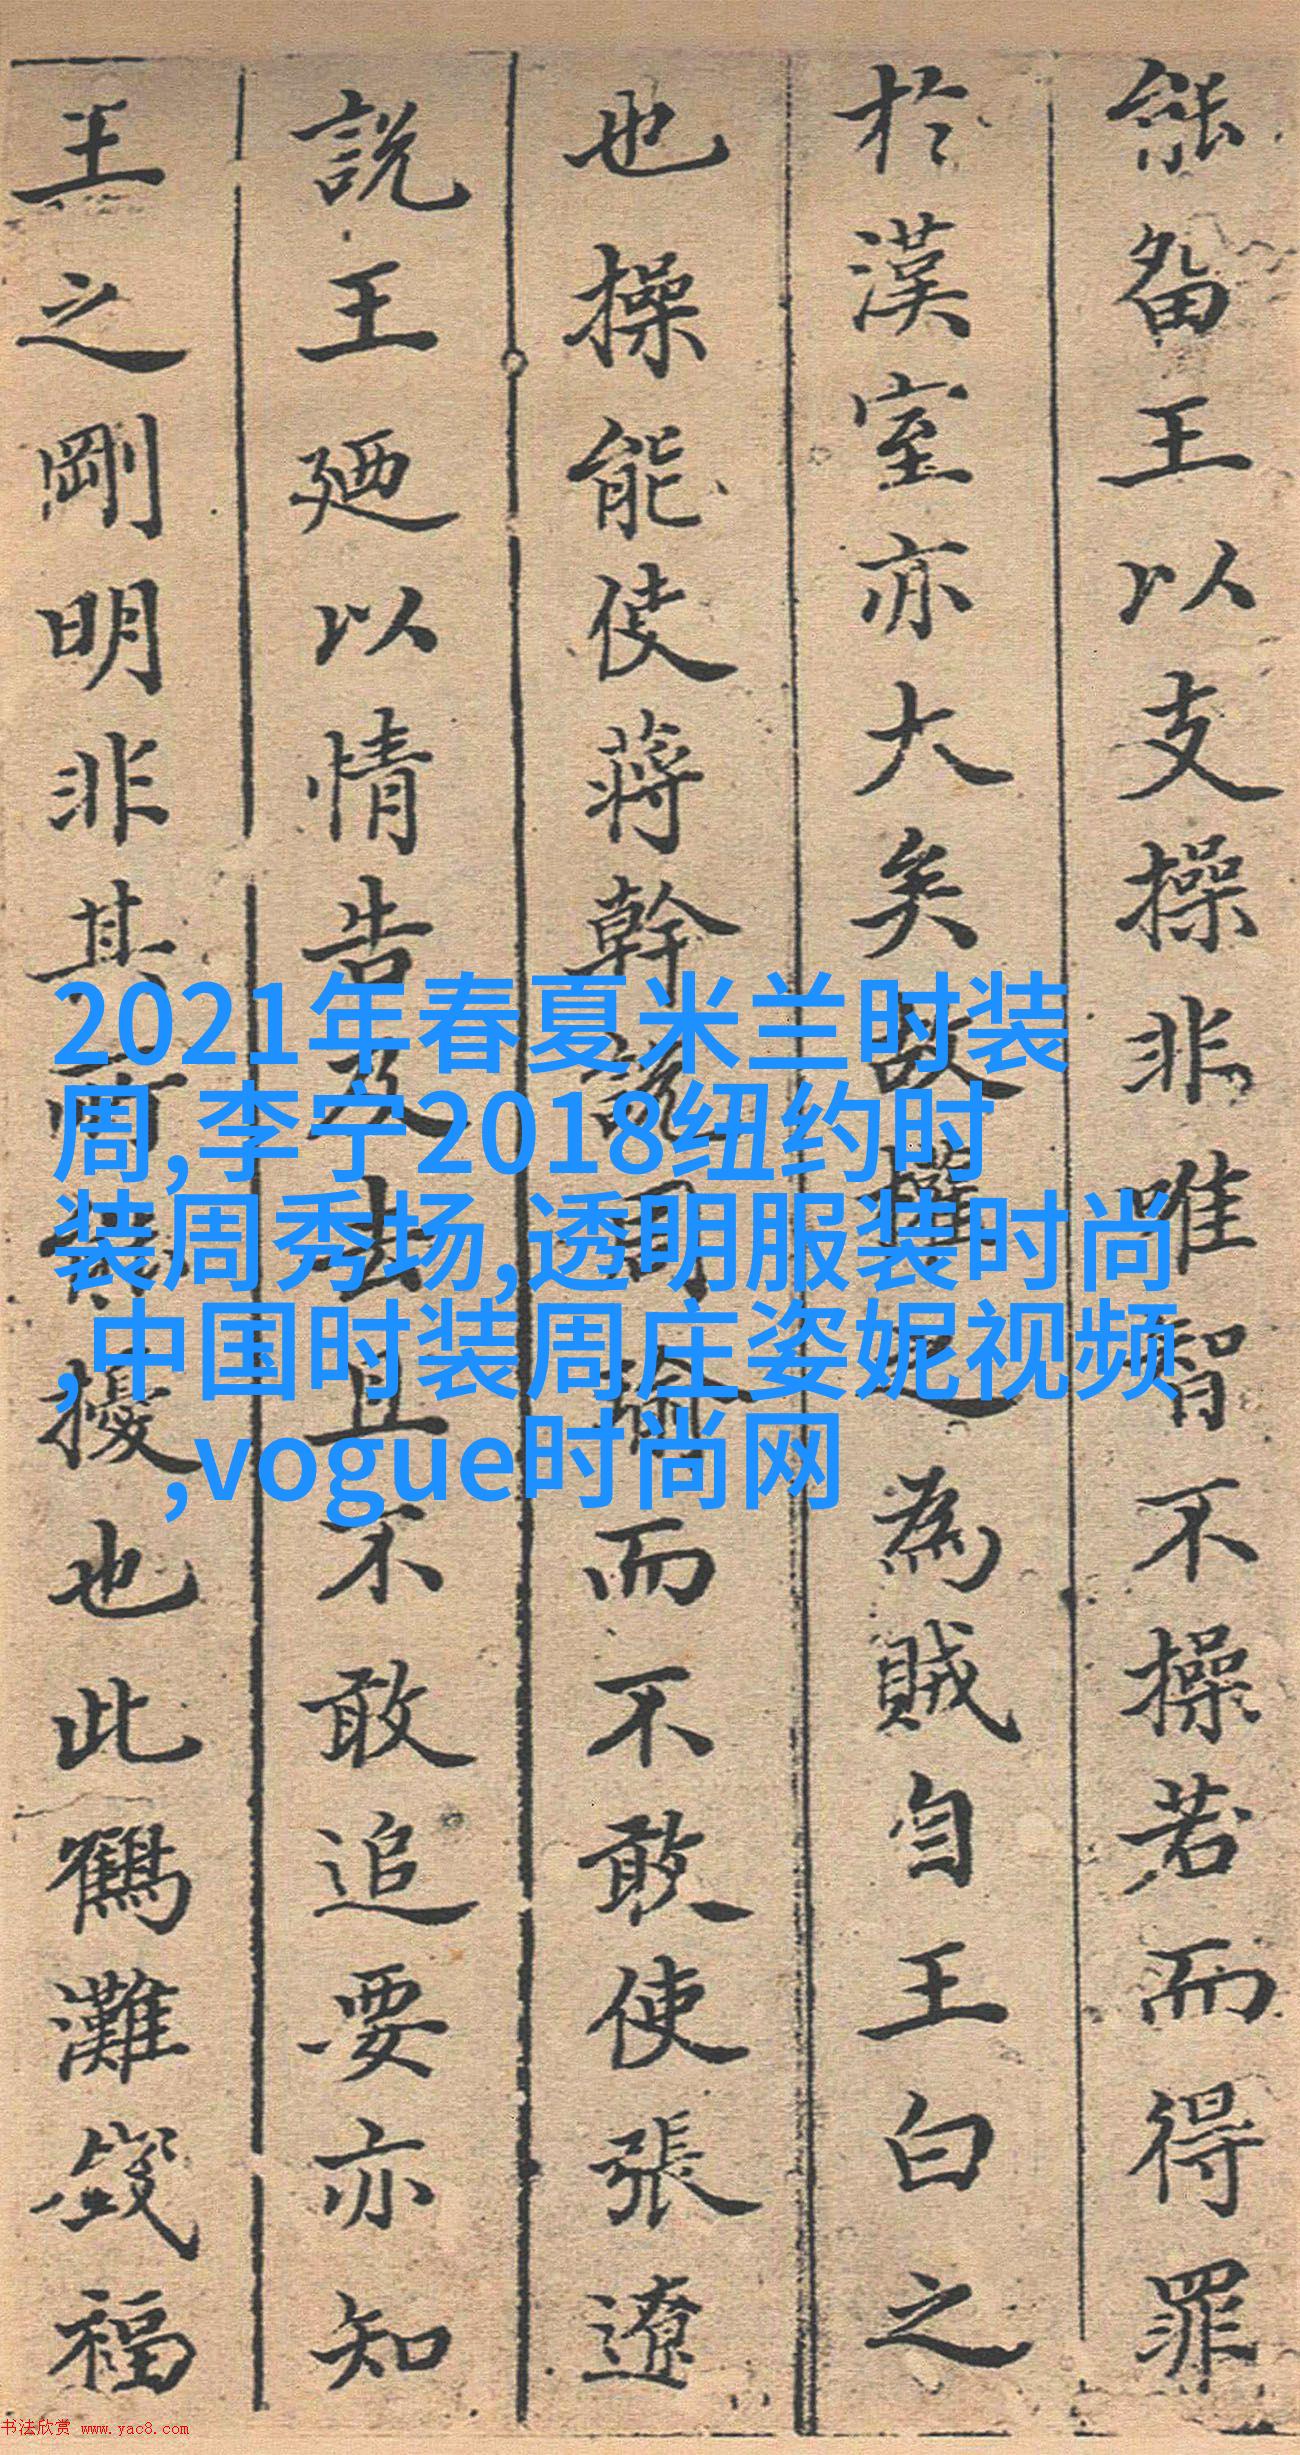 能畱王以支操非唯智不操若而得罪
於漢室亦大矣故權之為賊自王白之
也操能使蔣幹說周瑜而不敢使張遼
說王廼以情告及去且不敢追要亦知
王之剛明非其所能擾也此鶴灘錢福
2021年春夏米兰时装
周,李宁2018纽约时
装周秀场,透明服装时尚
,中国时装周庄姿妮视频
,vogue时尚网
书法欣赏 www.yac8.com